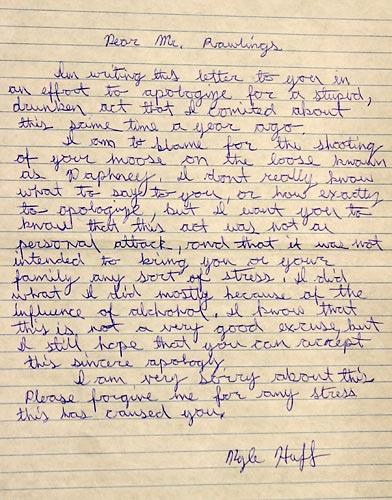 Dear Mr. Rawlings
Im writing this letter to you in
an effort to apologize for a stupid,
drunken act that I comited about
this same time a year ago
I am to blame for the shooting
of your moose on the loose known
as Daphney. I dont really know
what to say to you, or how exactly
to apologize, but I want you to
know that this act was not a
personal attack, and that it was not
intended to bring you or your
family any sort of stress. I did
what I did mostly because of the
influence of alchohol. I know that
this is not a very good excuse but
I still hope that you can accept
this sincere apology
I am very sorry about this
Please forgive me for any stress
this has caused you.
Kyle Huff